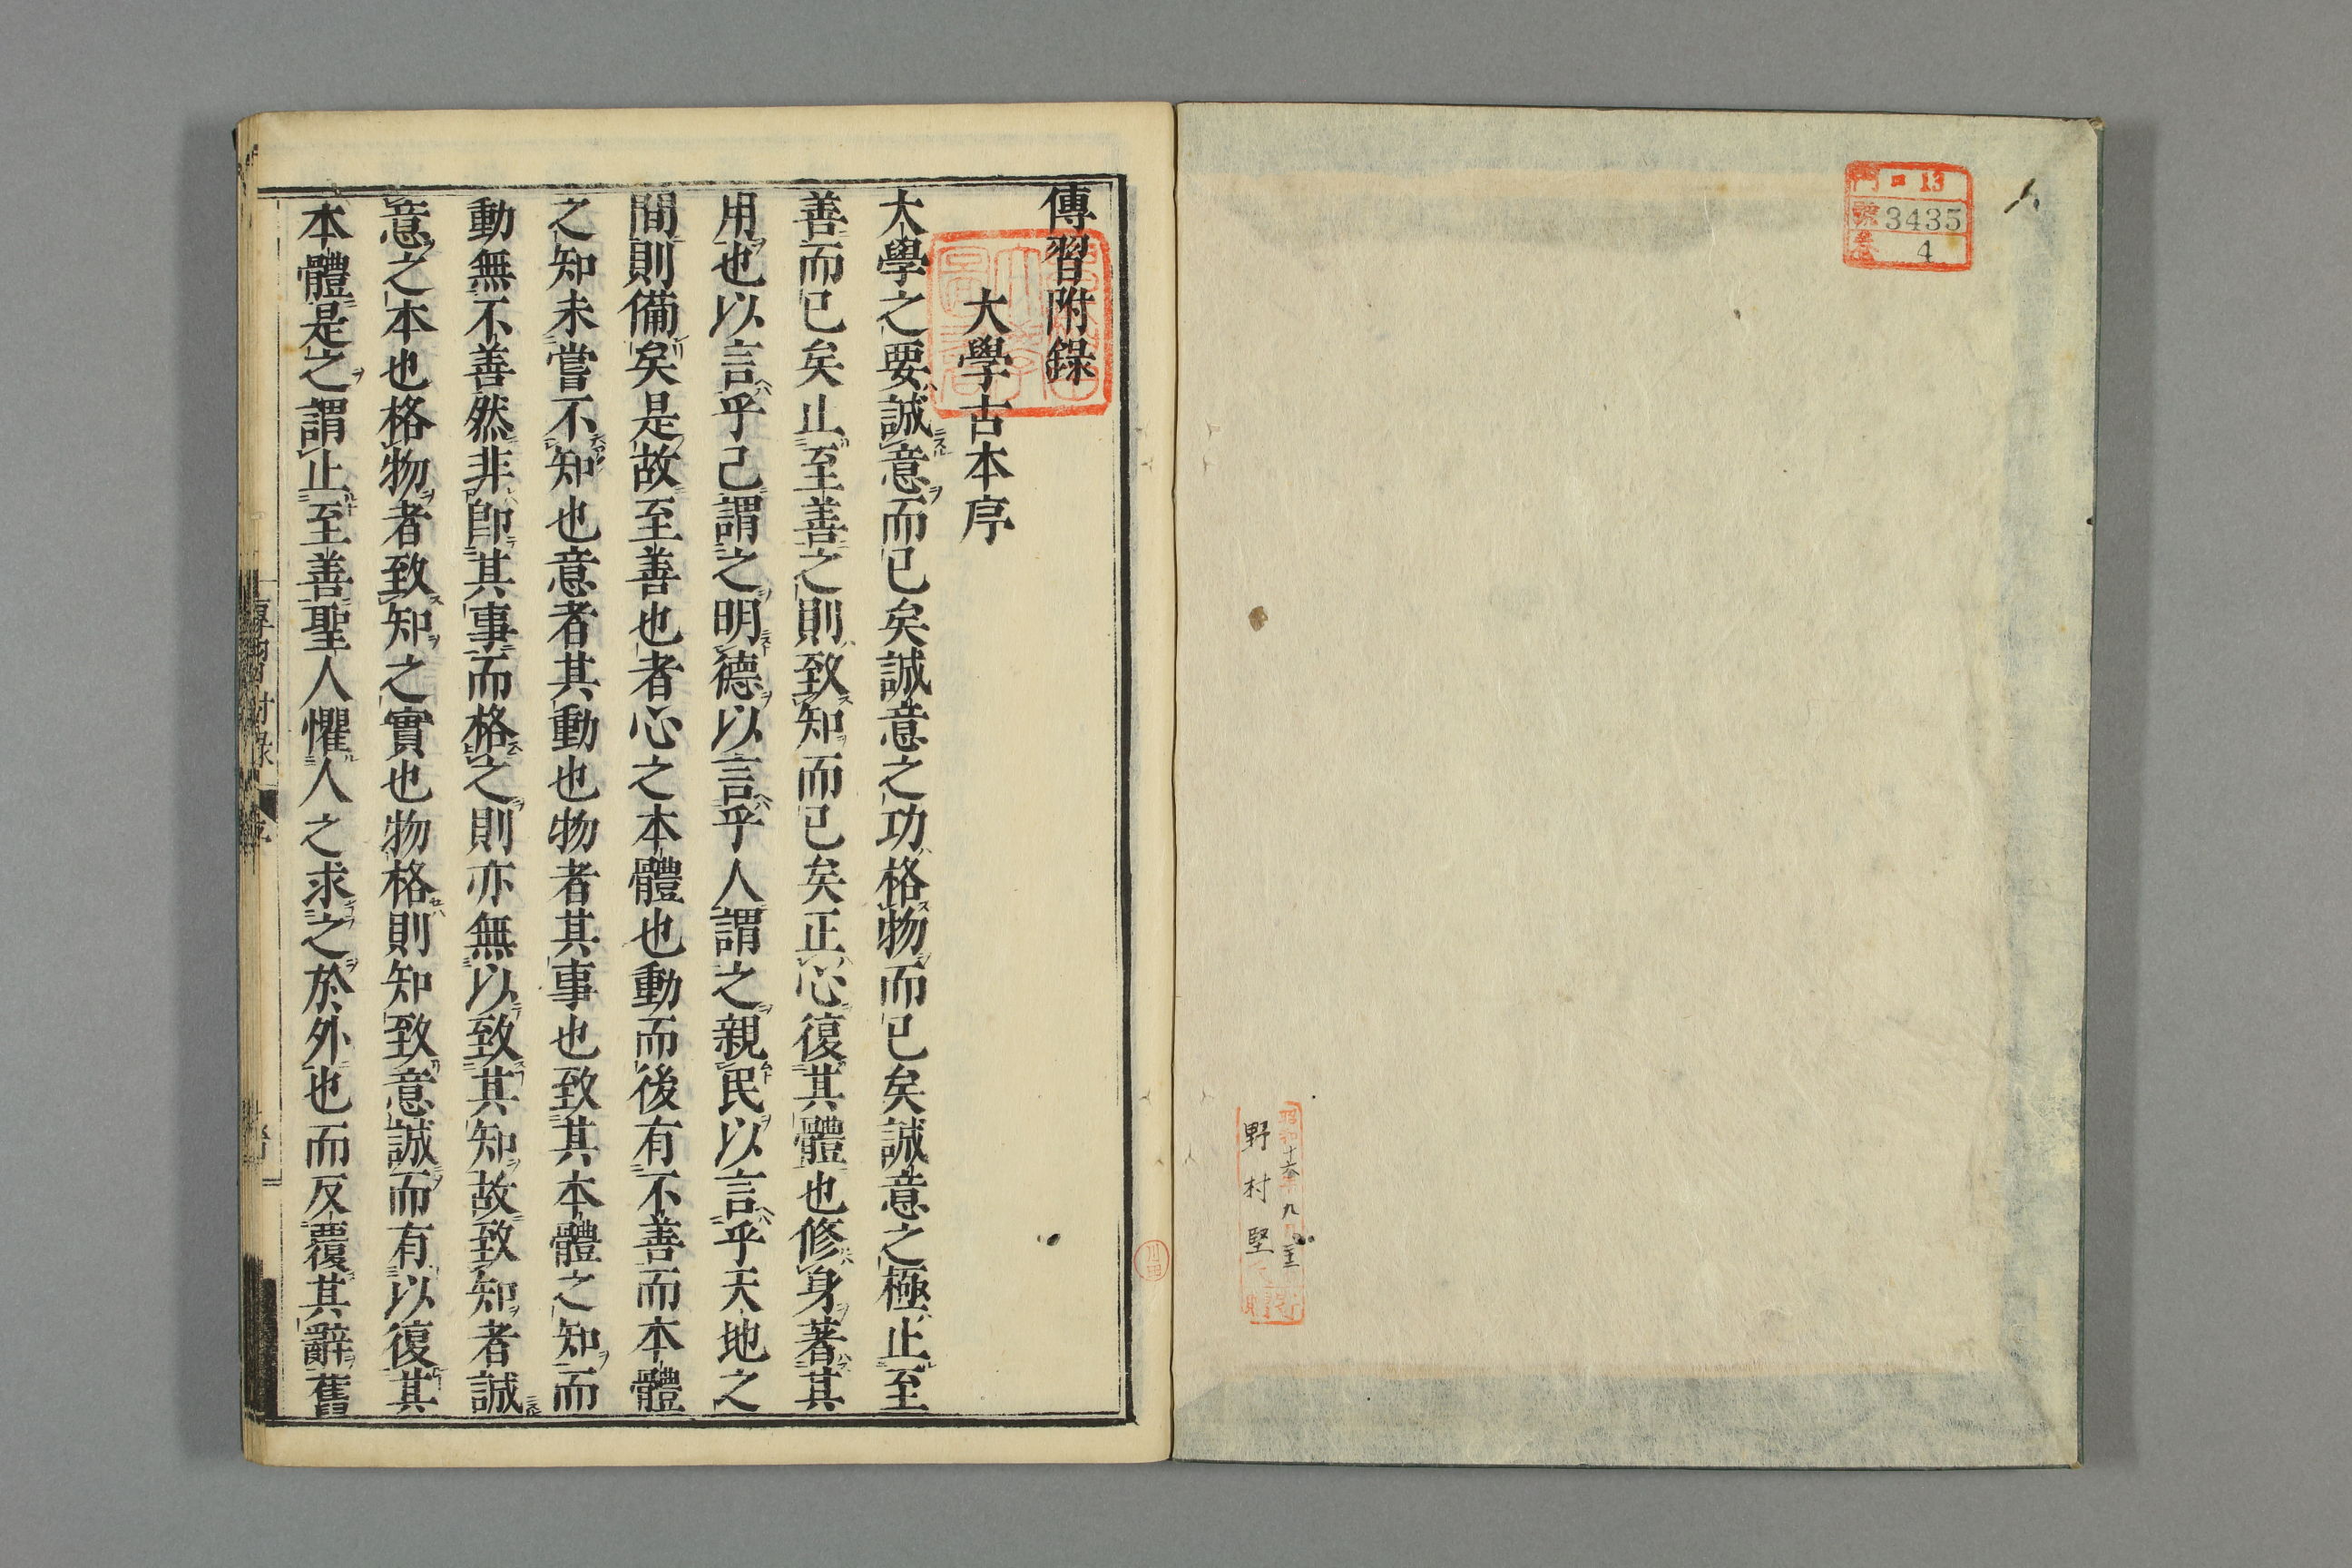 門 ロ 13
號 3435
卷 4
昭和十六年九月
野村堅
傳習附錄
大學古本序
大學之要誠意而已矣誠意之功格物而已矣誠意之極止至
善而已矣止至善之則致知而已矣正心復其體也修身著其
用也以言乎己謂之明德以言乎人謂之親民以言乎天地之
間則備矣是故至善也者心之本體也動而後有不善而本體
之知未嘗不知也意者其動也物者其事也致其本體之知而
動無不善然非卽其事而格之則亦無以致其知故致知者誠
意之本也格物者致知之實也物格則知致意誠而有以復其
本體是之謂止至善聖人懼人之求之於外也而反覆其辭舊
傳習附錄